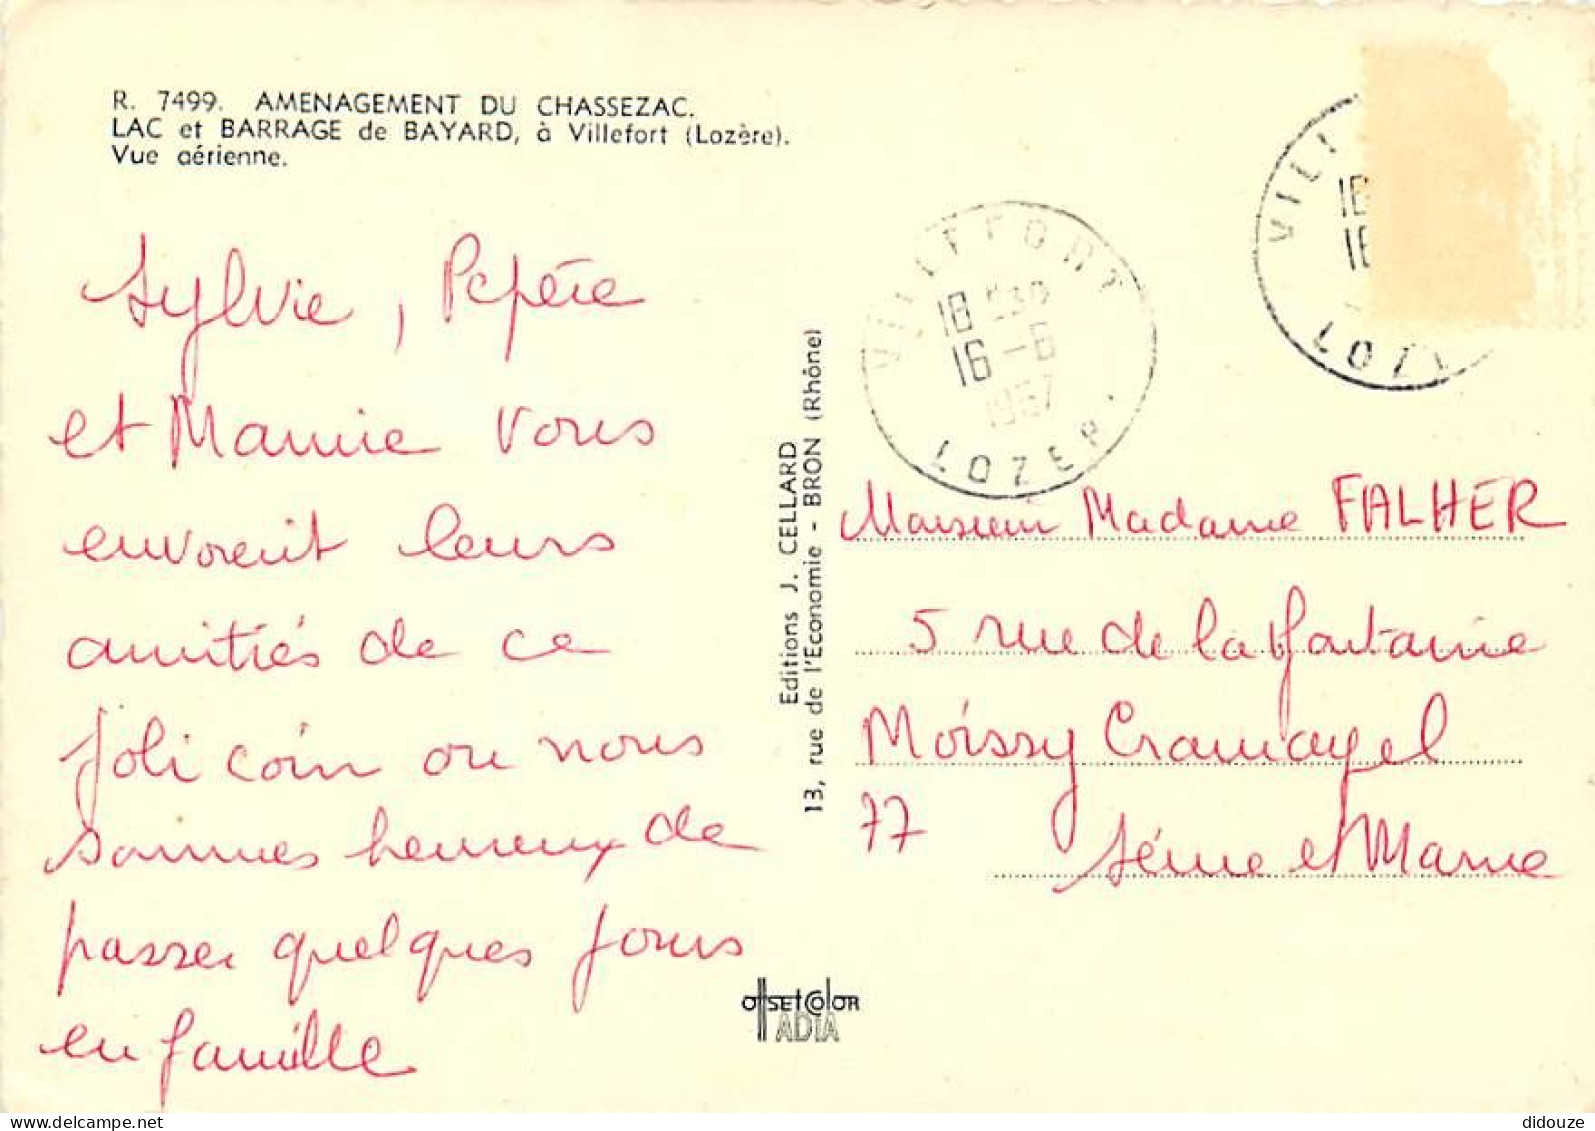 R. 7499. AMENAGEMENT DU CHASSEZAC.
LAC et BARRAGE de BAYARD, à Villefort (Lozère).
Vue aérienne.
Sylvie, Pépère
et Mamie vous
envoient leurs
amitiés de ce
joli coin ou nous
sommes heureux de
passer quelques jours
en famille
Editions J. CELLARD
13, rue de l'Economie - BRON (Rhône)
VILLEFORT
18 H30
16-6
1967
LOZERE
VILL
18
16
LOZE
Monsieur Madame FALHER
5 rue de la fontaine
Moissy Cramayel
77 Seine et Marne
OffSEt COloR
ADIA
didouze